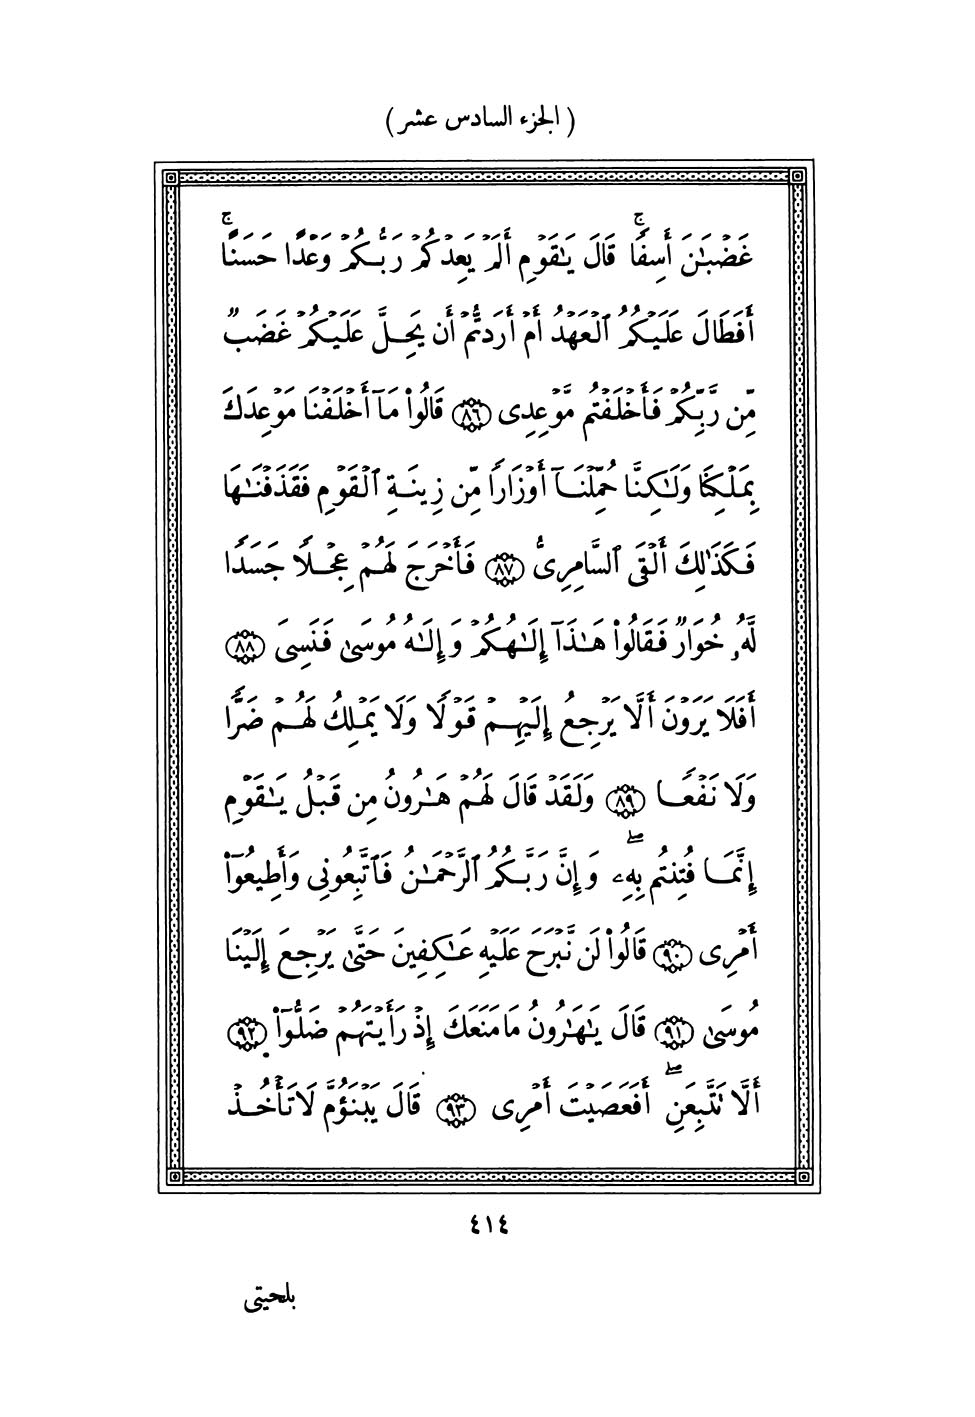 ( الجزء السادس عشر )
غَضْبَٰنَ أَسِفًا ۚ قَالَ يَٰقَوْمِ أَلَمْ يَعِدْكُمْ رَبُّكُمْ وَعْدًا حَسَنًا ۚ
أَفَطَالَ عَلَيْكُمُ ٱلْعَهْدُ أَمْ أَرَدتُّمْ أَن يَحِلَّ عَلَيْكُمْ غَضَبٌ
مِّن رَّبِّكُمْ فَأَخْلَفْتُم مَّوْعِدِى ٨٦ قَالُوا۟ مَآ أَخْلَفْنَا مَوْعِدَكَ
بِمَلْكِنَا وَلَٰكِنَّا حُمِّلْنَآ أَوْزَارًا مِّن زِينَةِ ٱلْقَوْمِ فَقَذَفْنَٰهَا
فَكَذَٰلِكَ أَلْقَى ٱلسَّامِرِىُّ ٨٧ فَأَخْرَجَ لَهُمْ عِجْلًا جَسَدًا
لَّهُۥ خُوَارٌ فَقَالُوا۟ هَٰذَآ إِلَٰهُكُمْ وَإِلَٰهُ مُوسَىٰ فَنَسِىَ ٨٨
أَفَلَا يَرَوْنَ أَلَّا يَرْجِعُ إِلَيْهِمْ قَوْلًا وَلَا يَمْلِكُ لَهُمْ ضَرًّا
وَلَا نَفْعًا ٨٩ وَلَقَدْ قَالَ لَهُمْ هَٰرُونُ مِن قَبْلُ يَٰقَوْمِ
إِنَّمَا فُتِنتُم بِهِۦ ۖ وَإِنَّ رَبَّكُمُ ٱلرَّحْمَٰنُ فَٱتَّبِعُونِى وَأَطِيعُوٓا۟
أَمْرِى ٩٠ قَالُوا۟ لَن نَّبْرَحَ عَلَيْهِ عَٰكِفِينَ حَتَّىٰ يَرْجِعَ إِلَيْنَا
مُوسَىٰ ٩١ قَالَ يَٰهَٰرُونُ مَا مَنَعَكَ إِذْ رَأَيْتَهُمْ ضَلُّوٓا۟ ٩٢
أَلَّا تَتَّبِعَنِ ۖ أَفَعَصَيْتَ أَمْرِى ٩٣ قَالَ يَبْنَؤُمَّ لَا تَأْخُذْ
٤١٤
بلحيتى